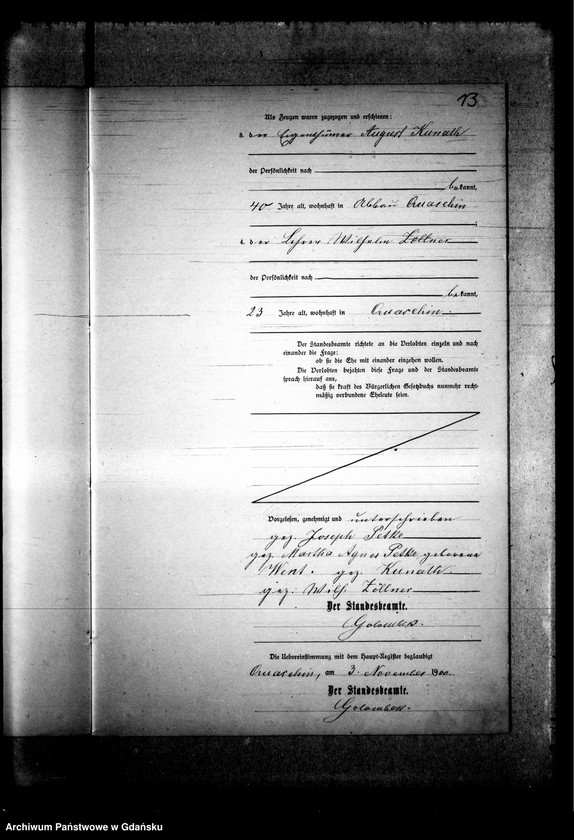 13
Als Zeugen waren zugezogen und erschienen:
3. der Eigenthümer August Kunath
der Persönlichkeit nach
bekannt,
40 Jahre alt, wohnhaft in Abbau Quaschin
;
4. der Lehrer Wilhelm Zöllner
der Persönlichkeit nach
bekannt,
23 Jahre alt, wohnhaft in Quaschin.
Der Standesbeamte richtete an die Verlobten einzeln und nach
einander die Frage:
ob sie die Ehe mit einander eingehen wollen.
Die Verlobten bejahten diese Frage und der Standesbeamte
sprach hierauf aus,
daß sie kraft des Bürgerlichen Gesetzbuchs nunmehr recht-
mäßig verbundene Eheleute seien.
Vorgelesen, genehmigt und unterschrieben
gez. Joseph Petke
gez. Martha Agnes Petke geborene
Went. gez. Kunath.
gez. Wilh. Zöllner
Der Standesbeamte.
Golombek.
Die Uebereinstimmung mit dem Haupt-Register beglaubigt
Quaschin, am 3. November 1900.
Der Standesbeamte.
Golombek.
Archiwum Państwowe w Gdańsku